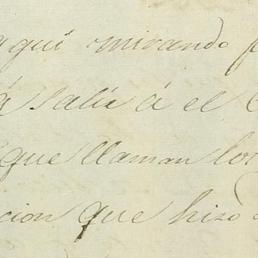 aquí mirando
á salir á el
que llaman los
cion que hizo